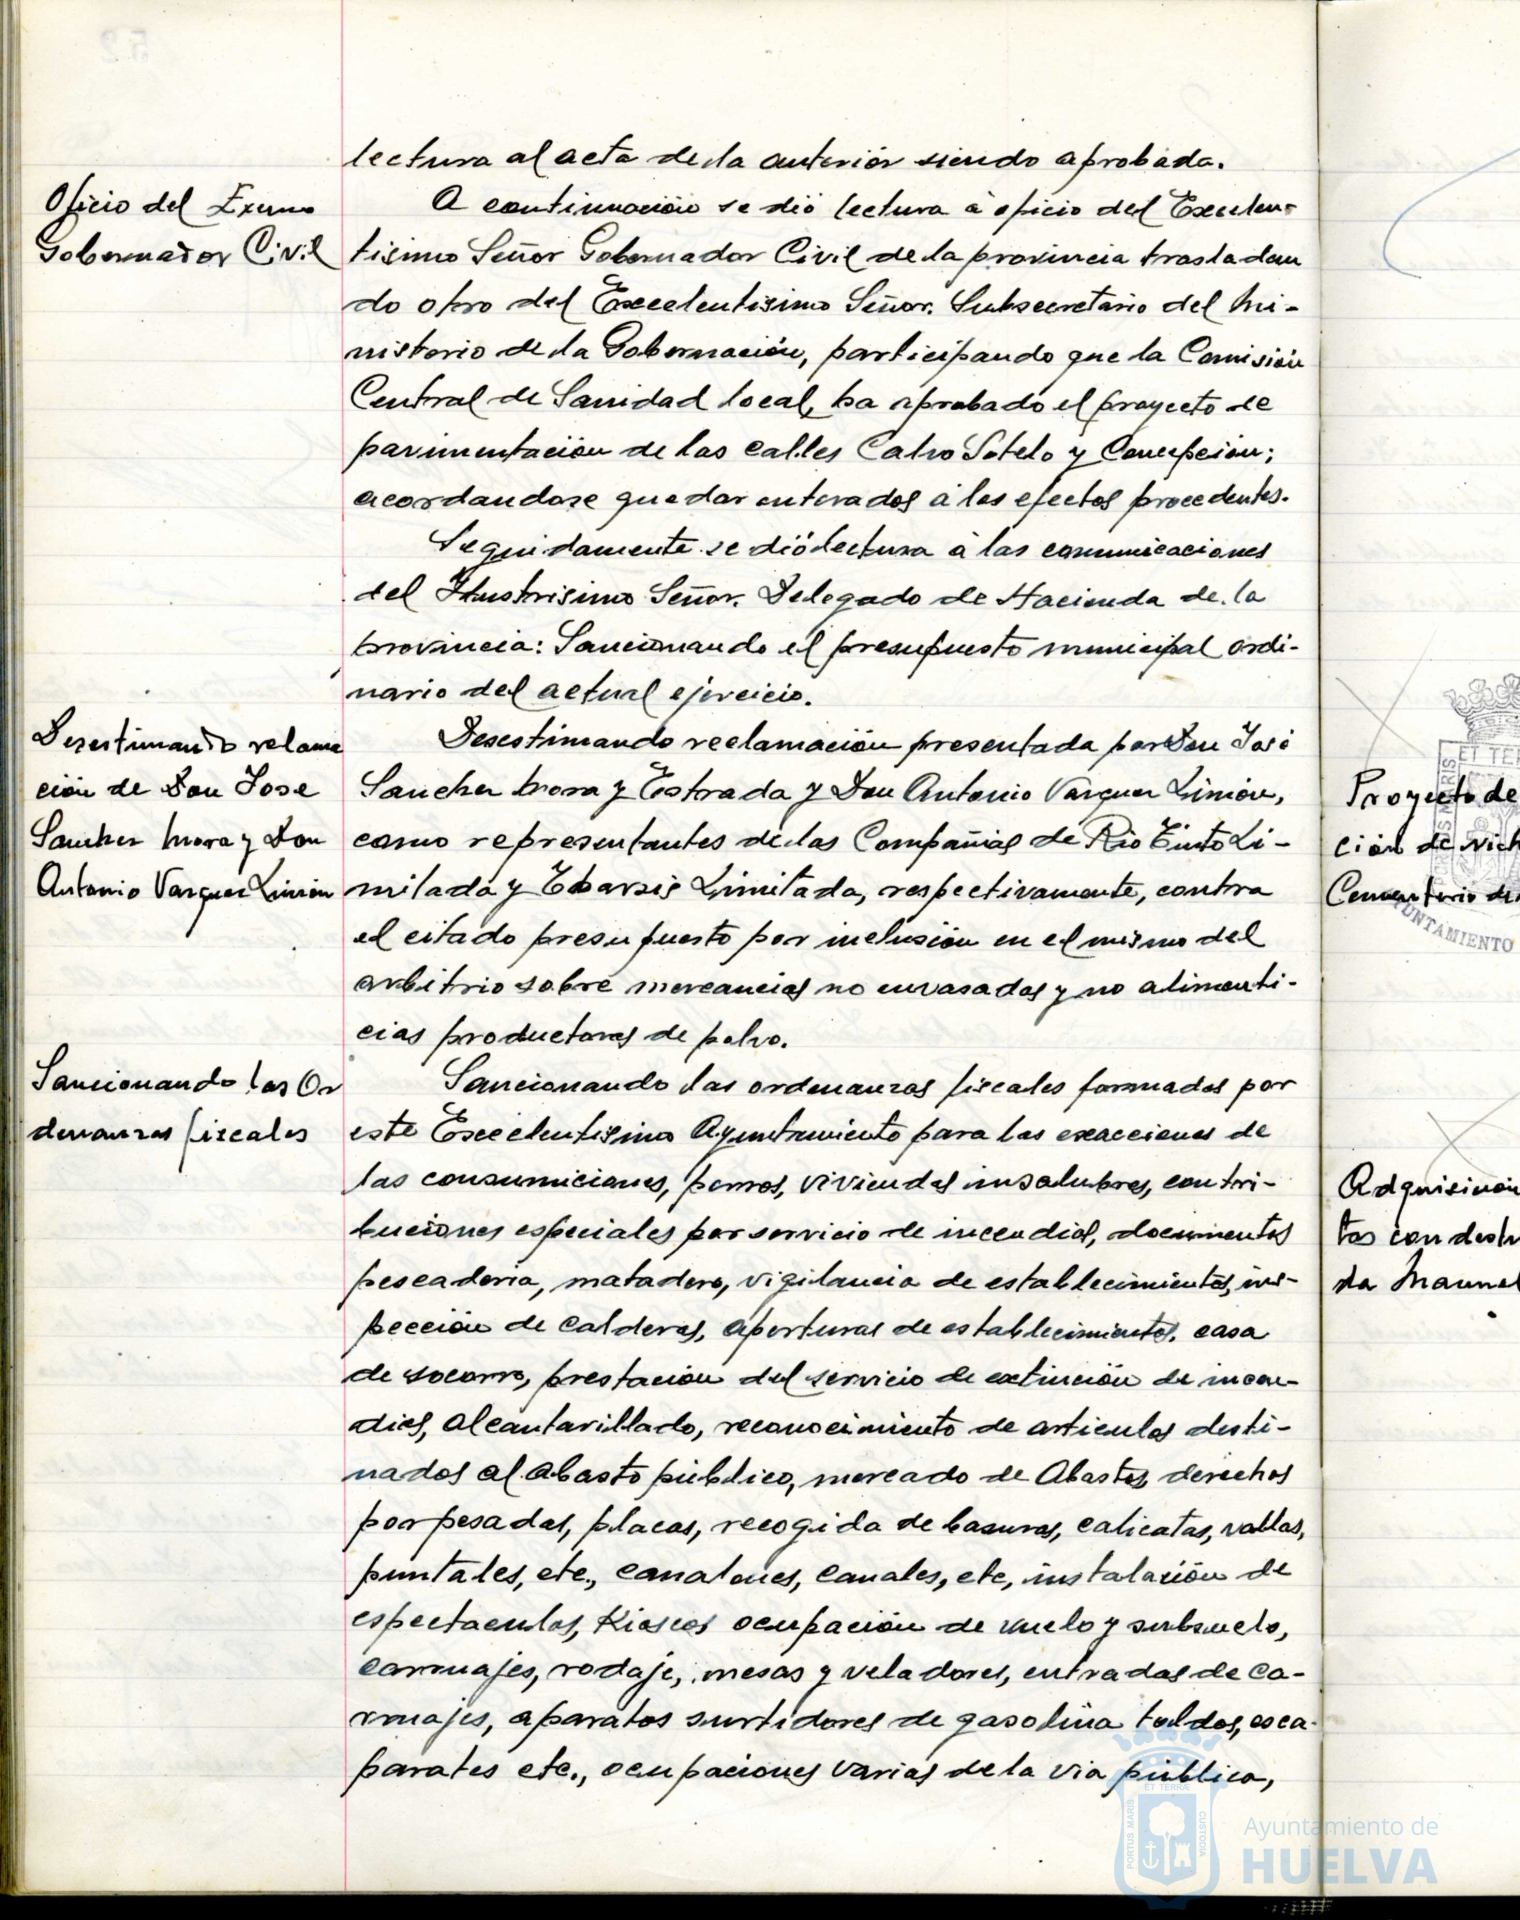 lectura al acta de la anterior siendo aprobada.
Oficio del Excmo
Gobernador Civil
A continuación se dió lectura à oficio del Excelen-
tisimo Señor Gobernador Civil de la provincia trasladan
do otro del Excelentisimo Señor. Subsecretario del Mi-
nisterio de la Gobernación, participando que la Comisión
Central de Sanidad local, ha aprobado el proyecto de
pavimentación de las calles Calvo Sotelo y Concepción;
acordandose quedar enterados à los efectos procedentes.
Seguidamente se dió lectura à las comunicaciones
del Ilustrisimo Señor. Delegado de Hacienda de la
provincia: Sancionando el presupuesto municipal ordi-
nario del actual ejercicio.
Desestimando reclama
ción de Don Jose
Sanchez Mora y Don
Antonio Vazquez Limón
Desestimando reclamación presentada por Don José
Sanchez Mora y Estrada y Don Antonio Vazquez Limón,
como representantes de las Compañias de Rio Tinto Li-
mitada y Tharsis Limitada, respectivamente, contra
el citado presupuesto por inclusión en el mismo del
arbitrio sobre mercancias no envasadas y no alimenti-
cias productoras de polvo.
Sancionando las Or
denanzas fiscales
Sancionando las ordenanzas fiscales formadas por
este Excelentisimo Ayuntamiento para las exacciones de
las consumiciones, perros, viviendas insalubres, contri-
buciones especiales por servicio de incendios, documentos
pescaderia, matadero, vigilancia de establecimientos, ins-
pección de calderas, aperturas de establecimientos, casa
de socorro, prestación del servicio de extinción de incen-
dios, alcantarillado, reconocimiento de articulos desti-
nados al abasto público, mercado de Abastos, derechos
por pesadas, placas, recogida de basuras, calicatas, vallas,
puntales, etc., canalones, canales, etc, instalación de
espectaculos, Kioscos ocupación de vuelo y subsuelo,
carruajes, rodaje, mesas y veladores, entradas de ca-
rruajes, aparatos surtidores de gasolina toldos, esca-
parates etc., ocupaciones varias de la via pública,
Proyecto de
ción de nich
Cementerio de
Adquisición
tos con desti
da Manuel
ET TER
MARIS
AYUNTAMIENTO
PORTUS MARIS
ET TERRÆ
CUSTODIA
Ayuntamiento de
HUELVA